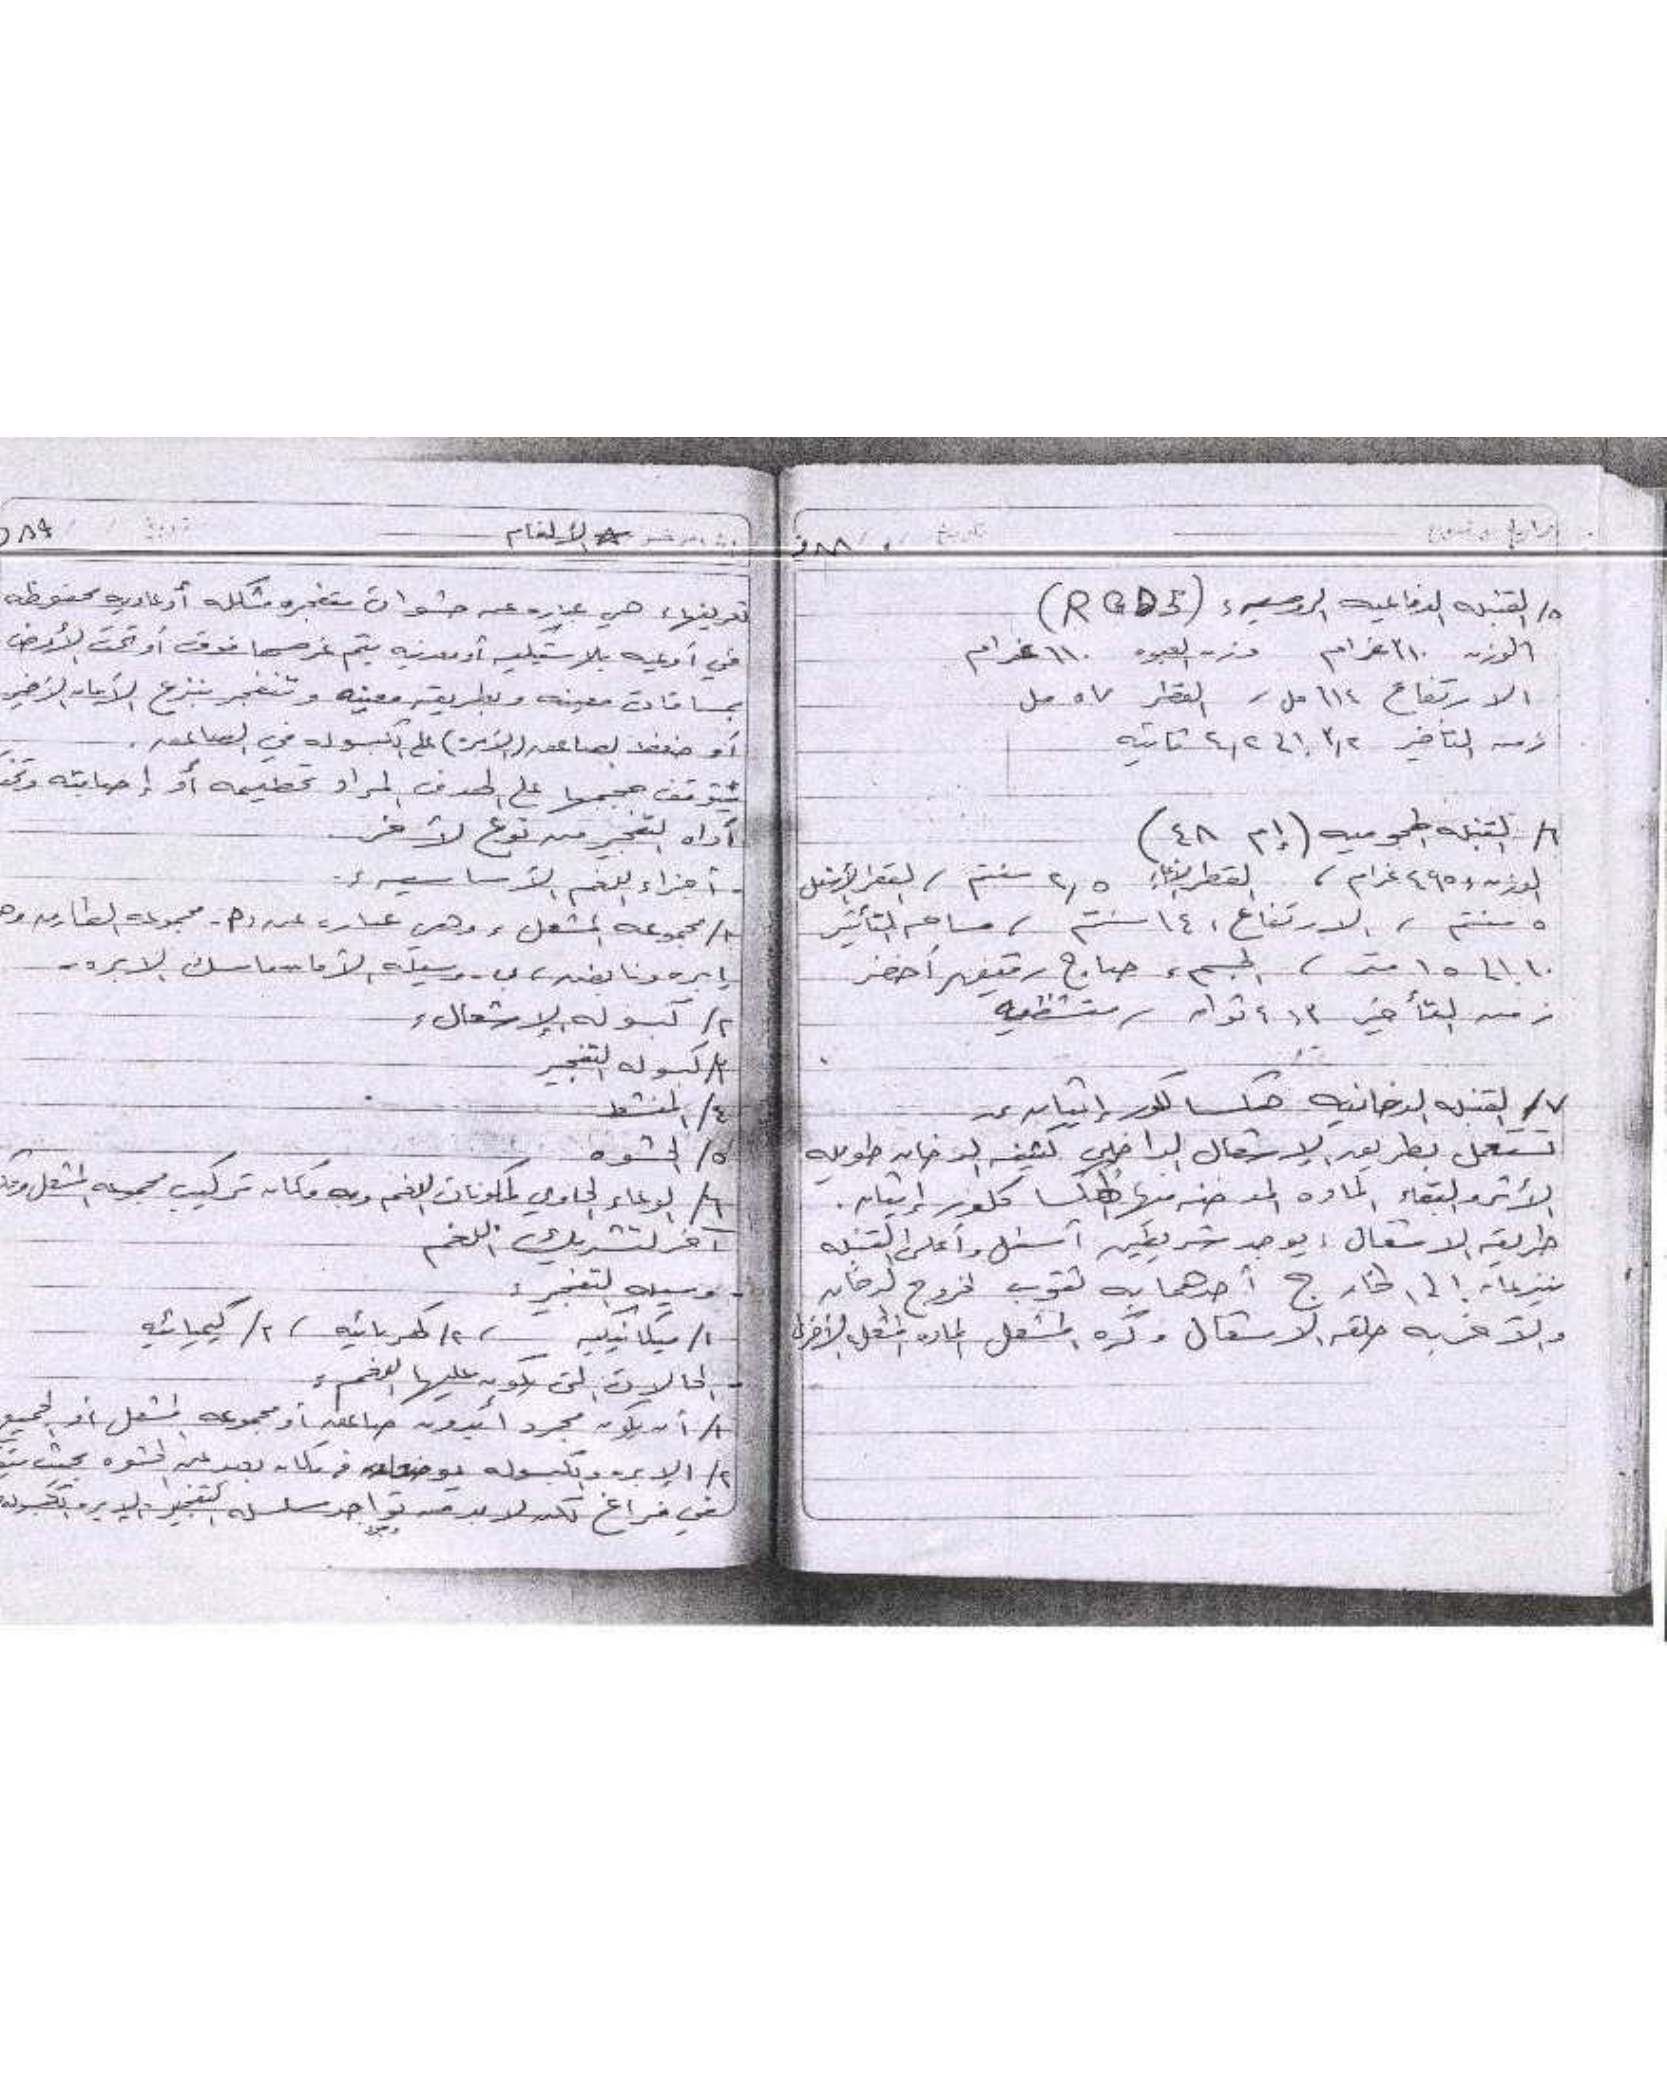 ٥/ القنبله الدفاعيه الروسيه: (RGD5)
الوزن ٣١٠ غرام وزن العبوه ١١٠ غرام
الارتفاع ١١٤ مل، القطر ٥٧ مل
زمن التأخير ٣,٢ إلى ٤,٢ ثانيه
٦/ القنبله الهجوميه (إم ٤٨)
الوزن: ٤٩٥ غرام، القطر الأعلى ٢,٥ سنتم / القطر الأسفل
٥ سنتم / الارتفاع: ١٤ سنتم / مساحه التأثير
١٠ إلى ١٥ متر، الجسم: صاج رقيق أخضر
زمن التأخير ٣، ٤ ثوان / متشظيه
٧/ القنبله الدخانيه هكسا كلور إيثان
تستعمل بطريق الاشعال الداخلي كثيفه الدخان طويله
الأثر والبقاء الماده المدخنه منها هكسا كلور إيثان.
طريقه الاشعال: يوجد شريطين أسفل وأعلى القنبله
ينزعان إلى الخارج أحدهما به ثقوب لخروج الدخان
والآخر به حلقه الاشعال وكره المشعل الماده المشعل الأخرى
الألغام
٥٨٩
تعريفها: هي عباره عن حشوات متفجره مشكله أو عاديه محفوظه
في أوعيه بلاستيكيه أو معدنيه يتم غرسها فوق أو تحت الأرض
بمسافات معينه وبطريقه معينه وتنفجر بنزع الأمان الأرضي
أو ضغط الصاعق (الأبره) على الكبسوله في الصاعق.
يتوقف حجمها على الهدف المراد تحطيمه أو إصابته
أداه التفجير من نوع لآخر.
- أجزاء اللغم الأساسيه:
١/ مجموعه المشعل: وهي عباره عن مجموعه الطارق
إبره ونابض، ب- وسيله الأمان ماسك الابره.
٢/ كبسوله الإشعال:
٣/ كبسوله التفجير
٤/ المنشط
٥/ الحشوه
٦/ الوعاء الحاوي لمكونات اللغم وبه مكان تركيب مجموعه المشعل
آخر لتشريك اللغم
- وسيله التفجير:
١/ ميكانيكيه، ٢/ كهربائيه، ٣/ كيميائيه
- الحالات التي يكون عليها اللغم:
١/ أن يكون مجرد أي بدون صاعق أو مجموعه المشعل أو الجميع
٢/ الإبره والكبسوله يوضعان في مكان بعيد عن الحشوه بحيث
في فراغ لكن لابد من تواجد سلسله التفجير الإبره